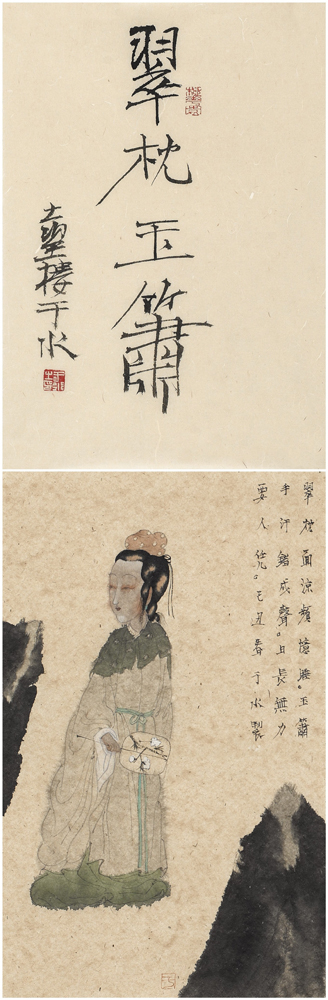 翠枕玉簫
樓于水
翠枕面涼頻憶睡。玉簫
手汗錯成聲。日長無力
要人凭。己丑春于水製